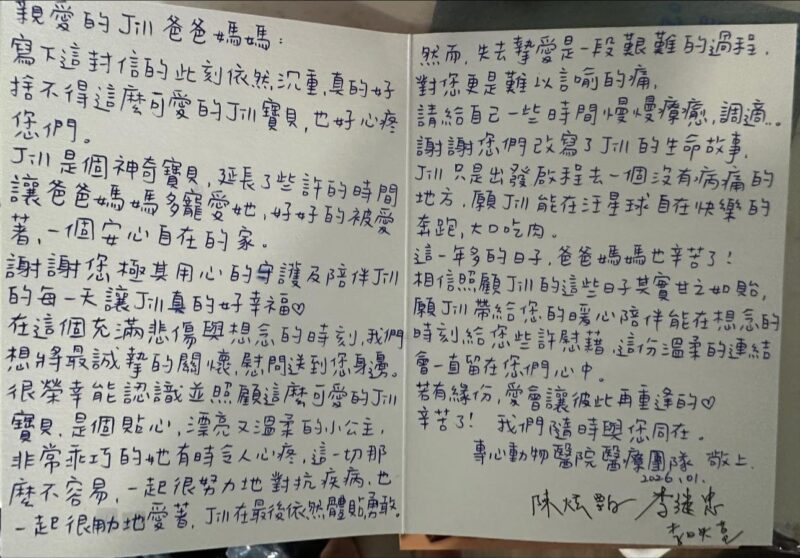 親愛的Jill爸爸媽媽：
寫下這封信的此刻依然沉重，真的好
捨不得這麼可愛的Jill寶貝，也好心疼
您們。
Jill是個神奇寶貝，延長了些許的時間
讓爸爸媽媽多寵愛她，好好的被愛
著，一個安心自在的家。
謝謝您極其用心的守護及陪伴Jill
的每一天讓Jill真的好幸福♡
在這個充滿悲傷與想念的時刻，我們
想將最誠摯的關懷，慰問送到您身邊。
很榮幸能認識並照顧這麼可愛的Jill
寶貝，是個貼心，漂亮又溫柔的小公主，
非常乖巧的她有時令人心疼，這一切那
麼不容易，一起很努力地對抗疾病，也
一起很用力地愛著，Jill在最後依然體貼勇敢。
然而，失去摯愛是一段艱難的過程，
對您更是難以言喻的痛，
請給自己一些時間慢慢療癒，調適...。
謝謝您們改寫了Jill的生命故事，
Jill只是出發啟程去一個沒有病痛的
地方，願Jill能在汪星球自在快樂的
奔跑，大口吃肉。
這一年多的日子，爸爸媽媽也辛苦了！
相信照顧Jill的這些日子其實甘之如飴，
願Jill帶給您的暖心陪伴能在想念的
時刻給您些許慰藉，這份溫柔的連結
會一直留在您們心中。
若有緣份，愛會讓彼此再重逢的♡
辛苦了！ 我們隨時與您同在。
專心動物醫院醫療團隊 敬上
2026.01.